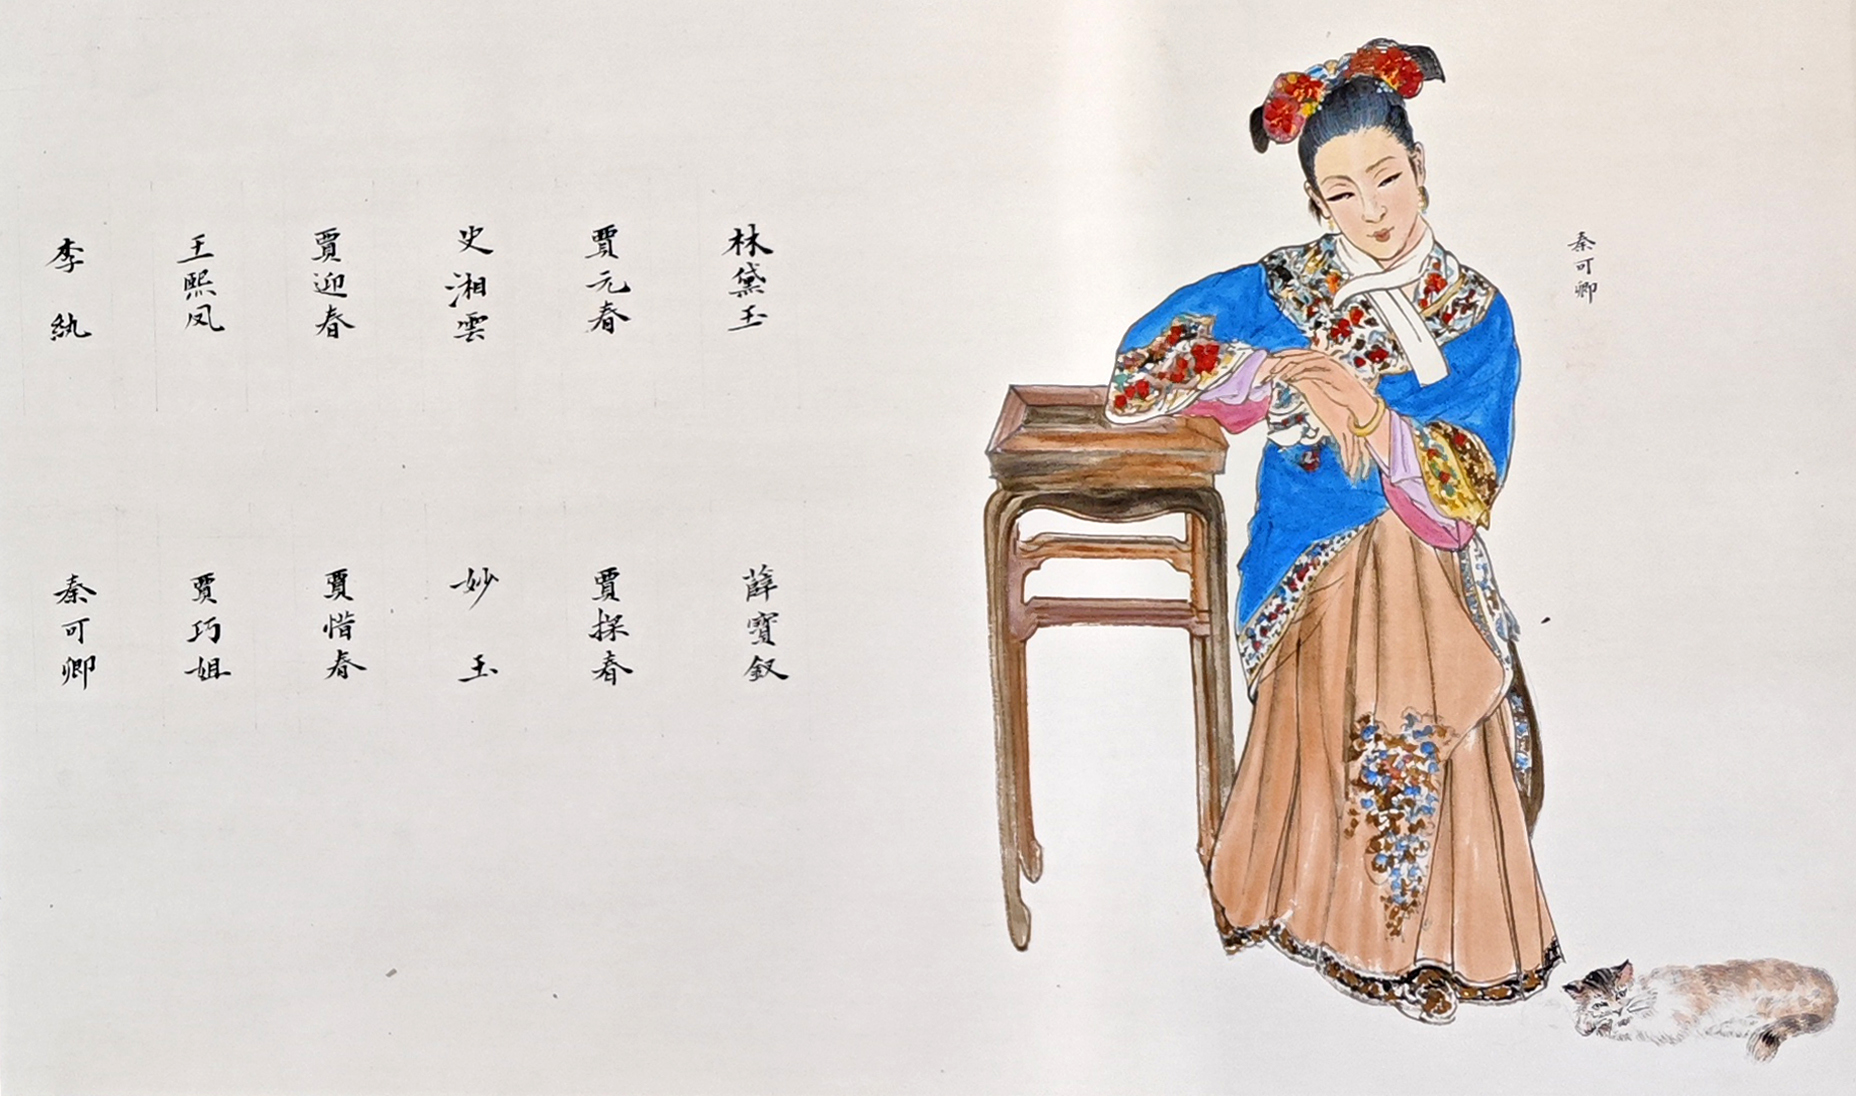 秦可卿
林黛玉
薛寶釵
賈元春
賈探春
史湘雲
妙玉
賈迎春
賈惜春
王熙凤
賈巧姐
李紈
秦可卿